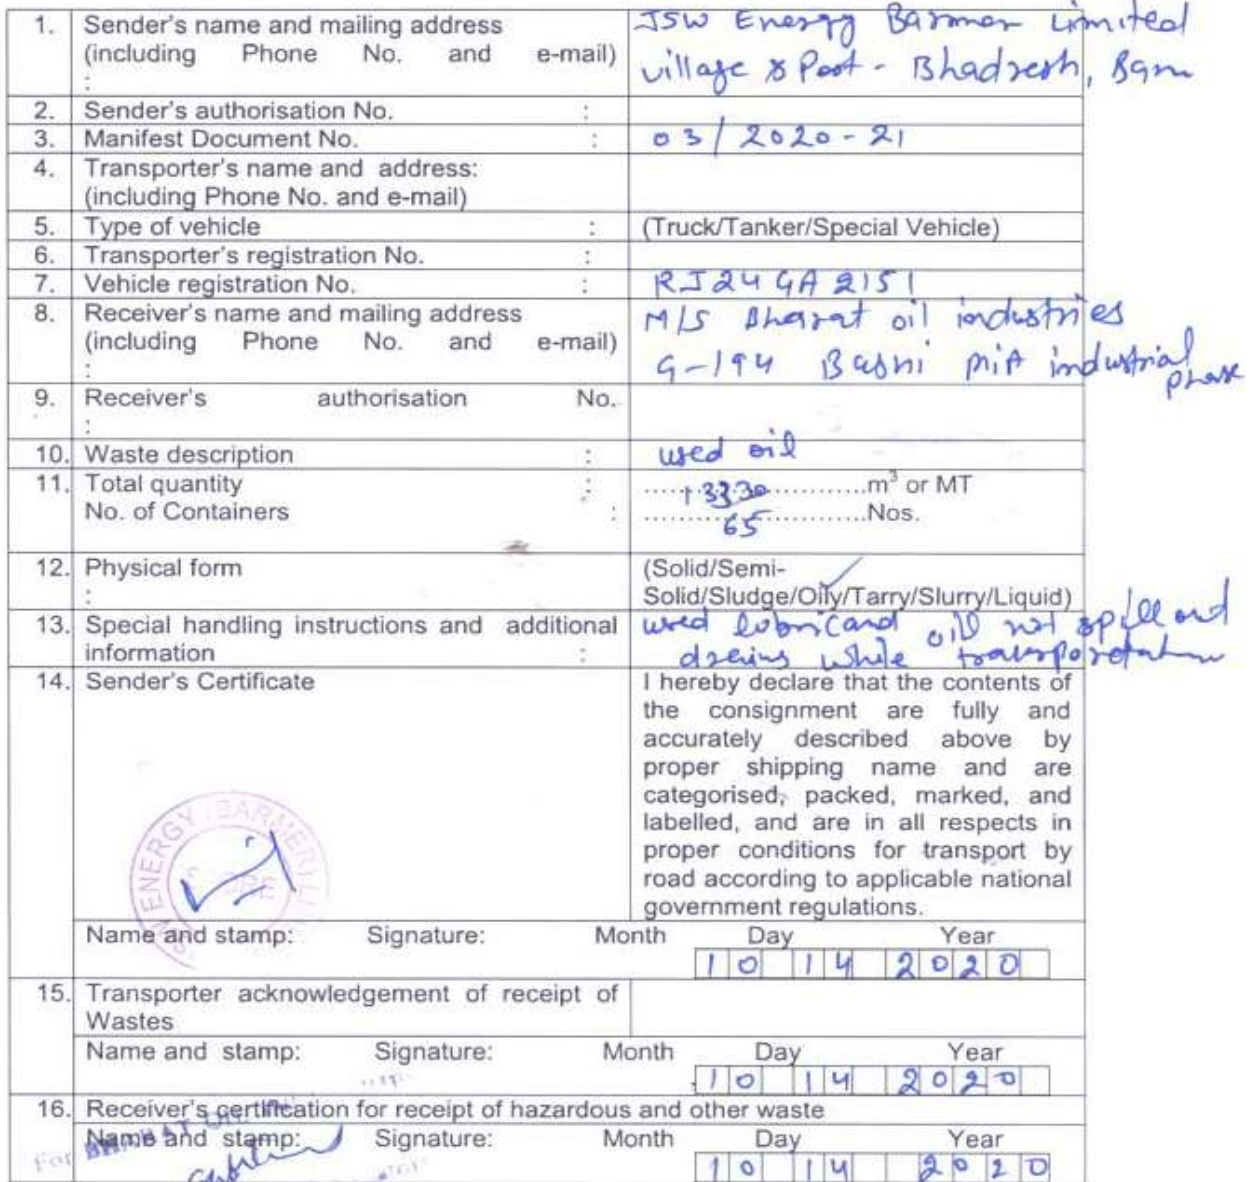 1. Sender's name and mailing address JSW Energy Barmer Limited
(including Phone No. and e-mail) village & Post - Bhadresh, Barm
:
2. Sender's authorisation No. :
3. Manifest Document No. : 03/2020-21
4. Transporter's name and address:
(including Phone No. and e-mail)
5. Type of vehicle : (Truck/Tanker/Special Vehicle)
6. Transporter's registration No. :
7. Vehicle registration No. : RJ24GA2151
8. Receiver's name and mailing address M/S Bharat oil industries
(including Phone No. and e-mail) G-194 Basni MIA industrial
: phase
9. Receiver's authorisation No.
:
10. Waste description : used oil
11. Total quantity : 13330 m³ or MT
No. of Containers : 65 Nos.
12. Physical form (Solid/Semi-
: Solid/Sludge/Oily/Tarry/Slurry/Liquid)
13. Special handling instructions and additional used lubricand oil not spill and
information : dreins while
14. Sender's Certificate I hereby declare that the contents of
the consignment are fully and
accurately described above by
proper shipping name and are
categorised, packed, marked, and
labelled, and are in all respects in
proper conditions for transport by
road according to applicable national
government regulations.
ENERGY (BARMER)
Name and stamp: Signature: Month Day Year
10 14 2020
15. Transporter acknowledgement of receipt of
Wastes
Name and stamp: Signature: Month Day Year
10 14 2020
16. Receiver's certification for receipt of hazardous and other waste
Name and stamp: Signature: Month Day Year
For BHARAT OIL
10 14 2020